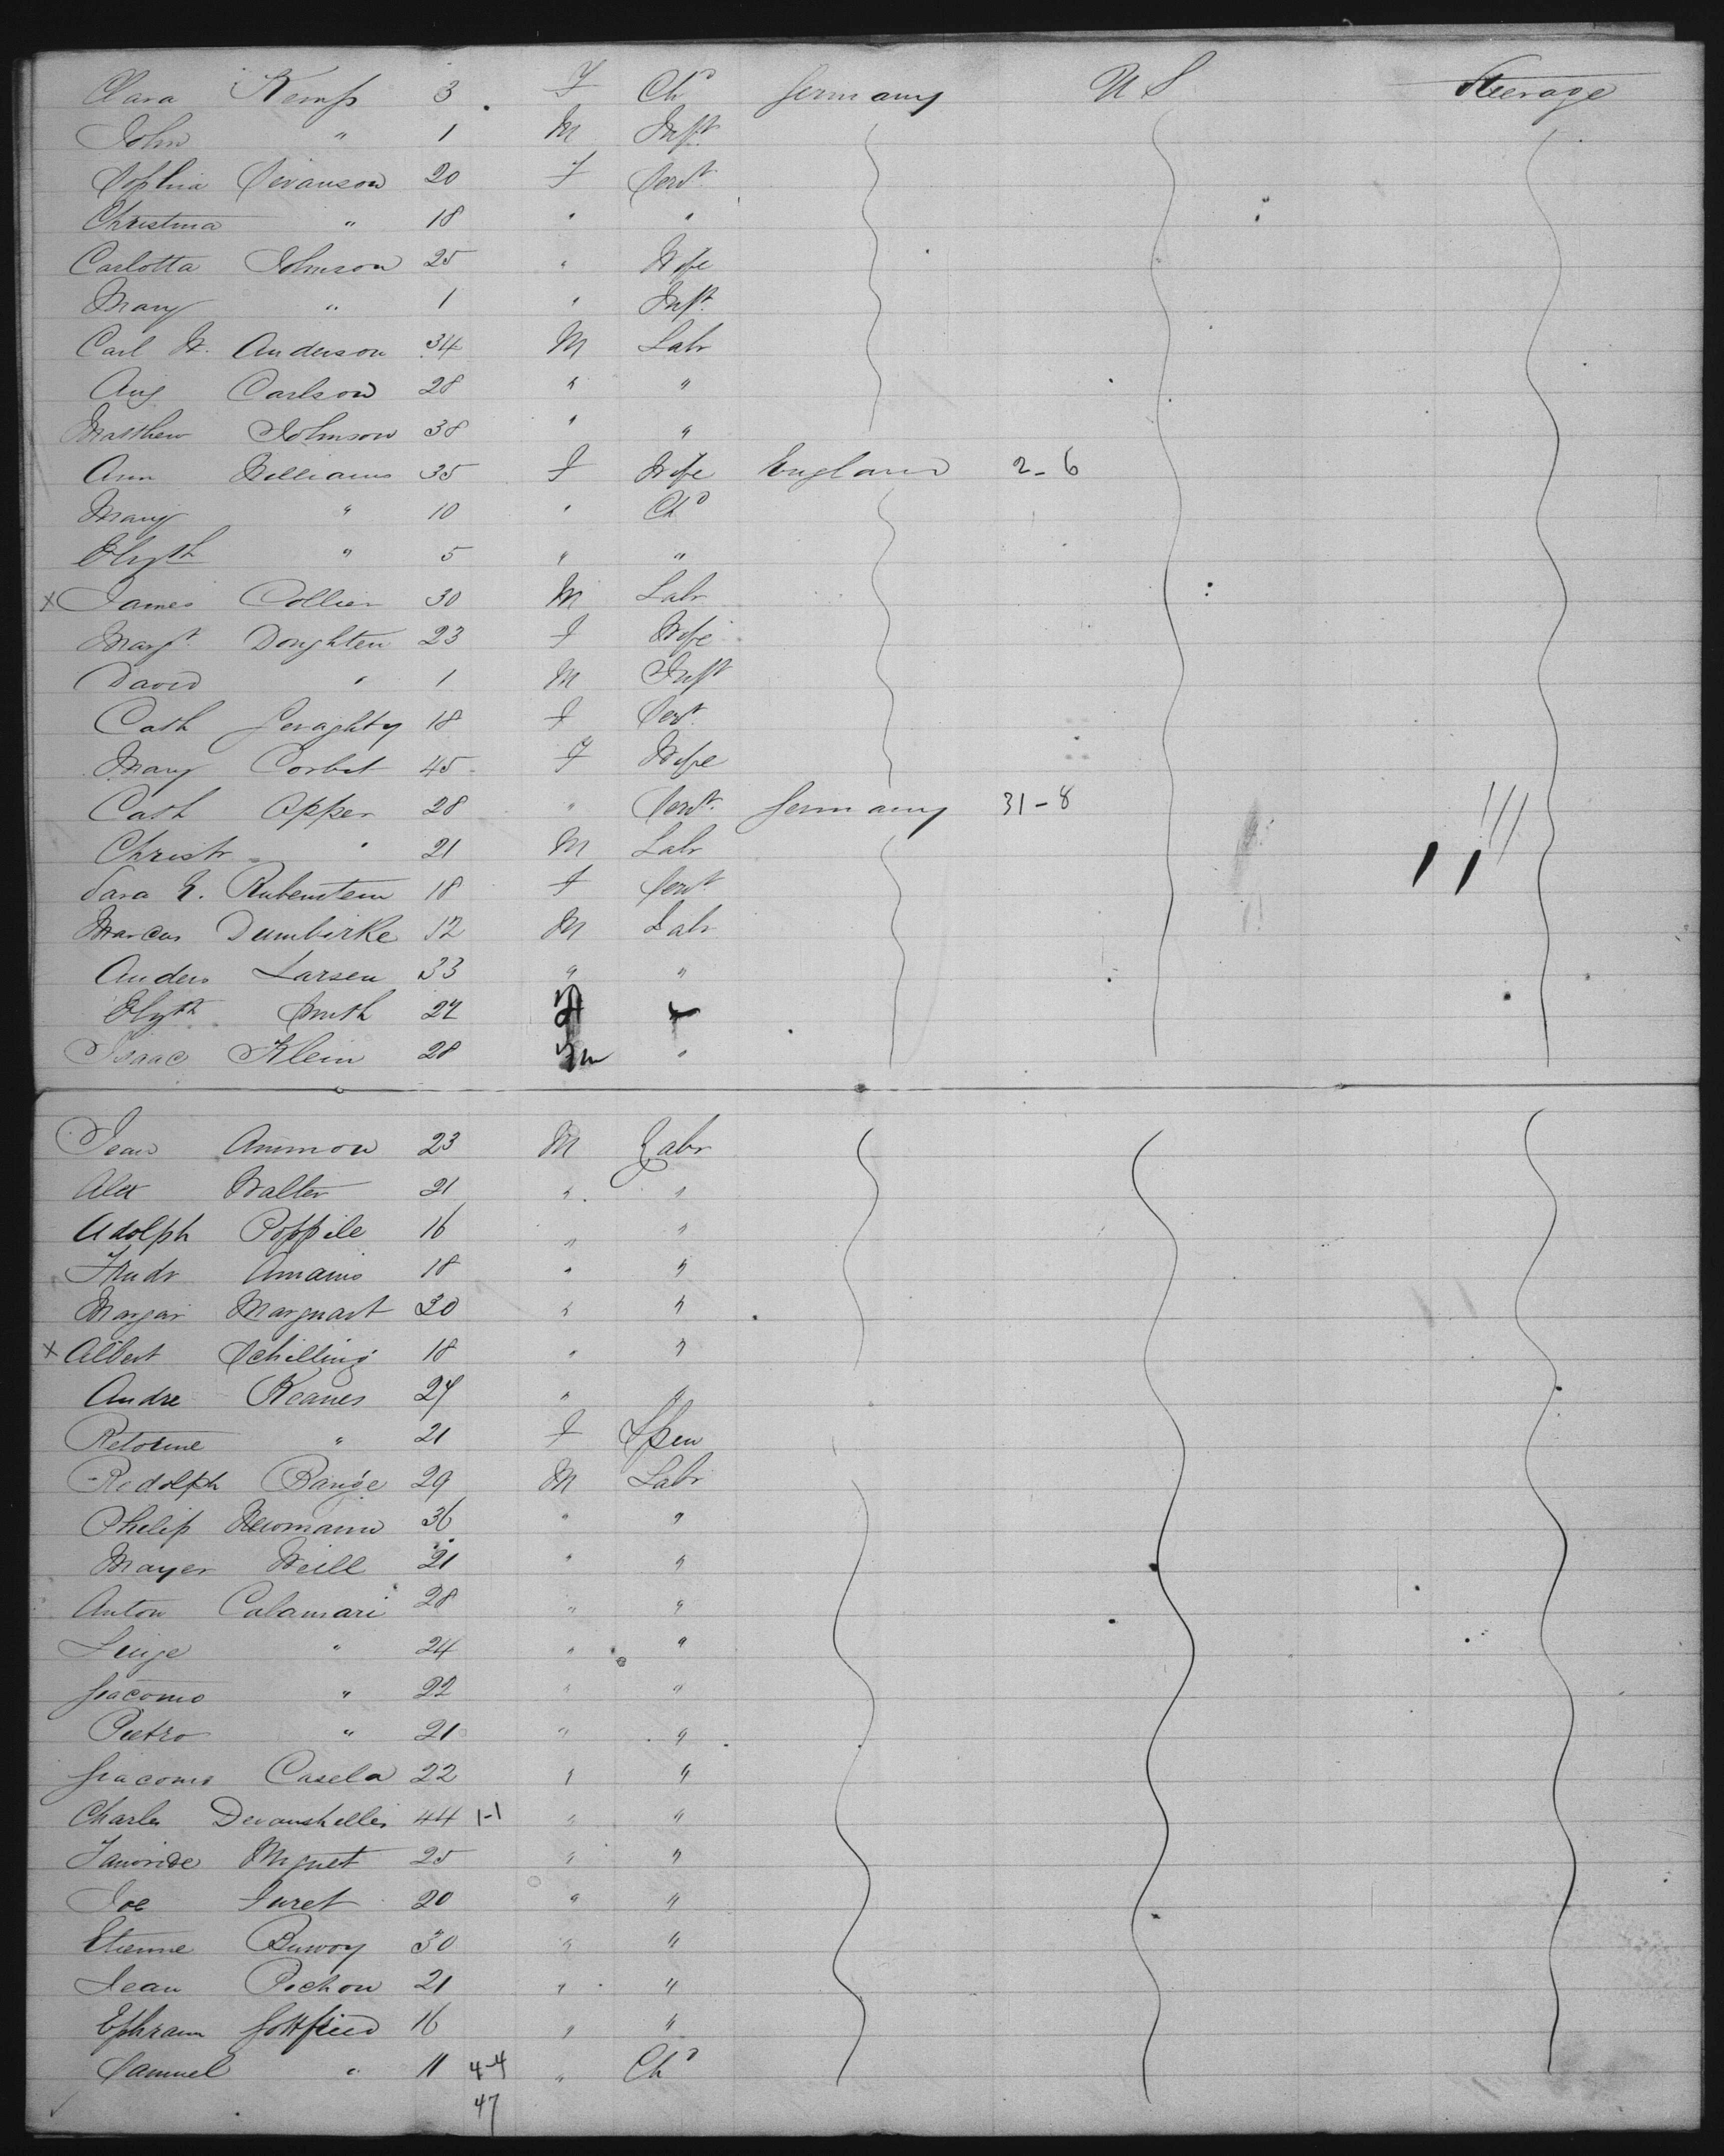 Clara Kemp 3 F Chd Germany U S Steerage
John " 1 M Inft
Sophia Swanson 20 F Servt
Christina " 18 " "
Carlotta Johnson 25 " Wife
Mary " 1 " Inft
Carl W. Anderson 34 M Labr
Aug Carlson 28 " "
Matthew Johnson 38 " "
Ann Williams 35 F Wife England 2-6
Mary " 10 " Chd
Elizth " 5 " "
x James Collier 30 M Labr
Margt Doughten 23 F Wife
David " 1 M Inft
Cath Geraghty 18 F Servt
Mary Corbet 45 F Wife
Cath Opper 28 " Servt Germany 31-8
Christr " 21 M Labr
Sara E. Rubenstein 18 F Servt
Marcus Dumbirke 12 M Labr
Anders Larsen 33 " "
Elizth Smith 27
Isaac Klein 28 m "
Jean Ammon 23 M Labr
Alex Walter 21 " "
Adolph Poppile 16 " "
Amains 18 " "
Marquart 30 " "
x Albert Schilling 18 " "
Andre Keanes 27 " "
21 F Spin
Rodolph Range 29 M Labr
Philip Neumann 36 " "
Mayer Weill 21 " "
Anton Calamari 28 " "
Luige " 24 " "
Giacomo " 22 " "
Pietro " 21 " "
Giacomo Casela 22 " "
Charles 44 1-1 " "
Mignet 25 " "
Joe Juret 20 " "
Etienne Buwoy 30 " "
Jean Pochon 21 " "
Ephraim Gottfried 16 " "
Samuel " 11 4-4 " Chd
47